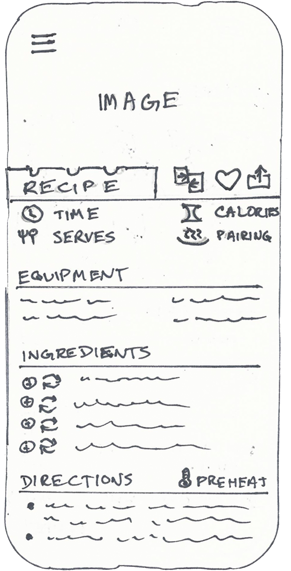 IMAGE
RECIPE
TIME
CALORIES
SERVES
PAIRING
EQUIPMENT
INGREDIENTS
DIRECTIONS PREHEAT